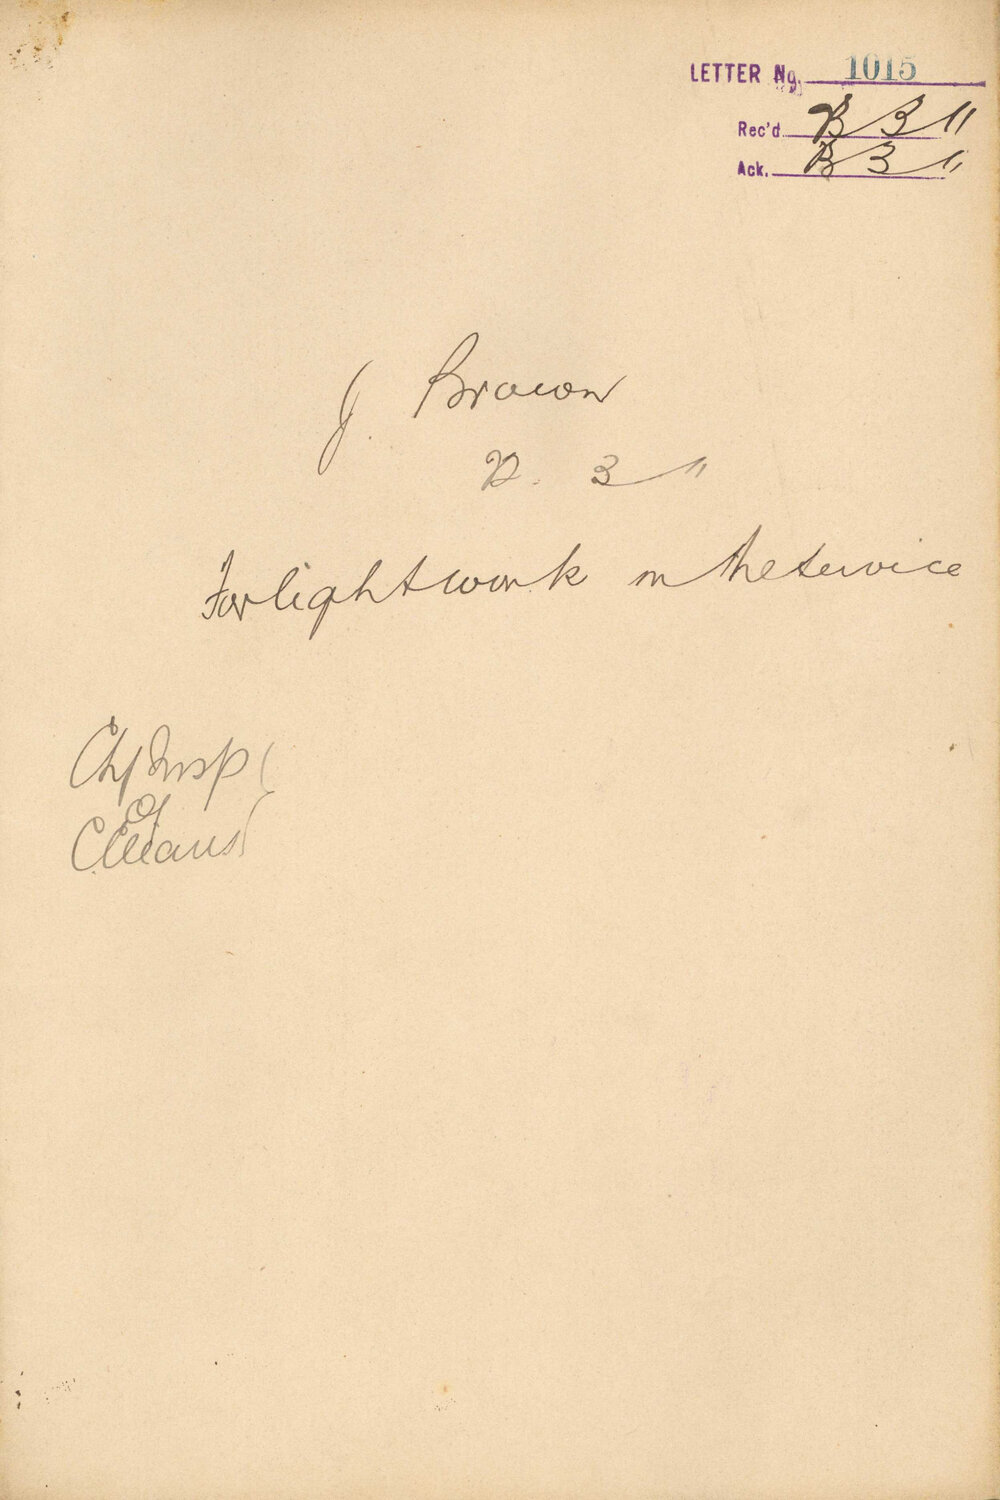 LETTER No. 1015
Rec'd 13 3 11
Ack. 13 3 11
J. Brown
12. 3 11
For light work in the service
Chf Insp
of
Cleans